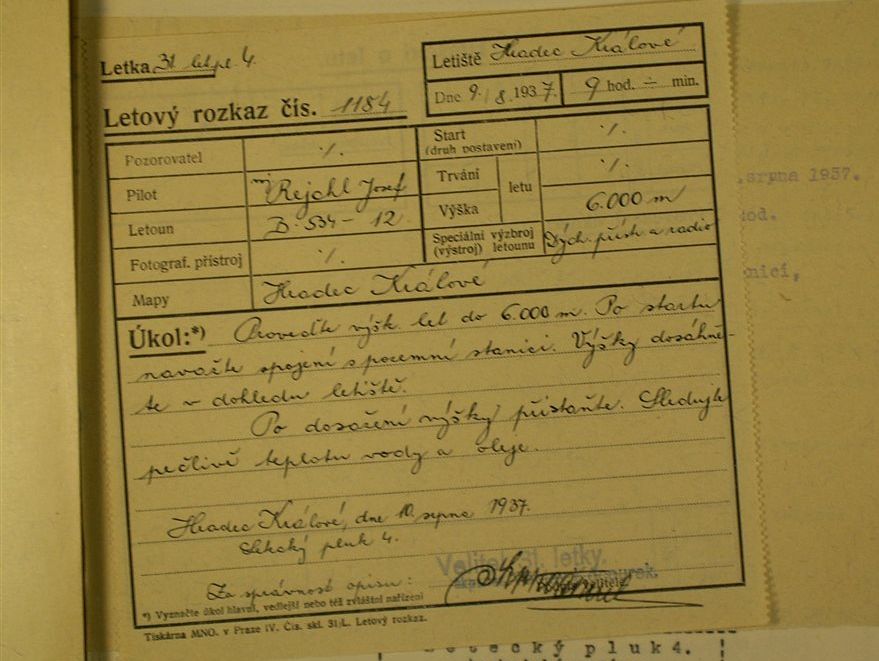 Letka 31 let. pl. 4.
Letiště Hradec Králové
Dne 9./8. 1937. 9 hod. ÷ min.
Letový rozkaz čís. 1184
Pozorovatel ./.
Start ./.
(druh postavení)
Pilot Rejchl Josef
Trvání letu ./.
Letoun B-534-12
Výška 6.000 m
Fotograf. přístroj ./.
Speciální výzbroj (výstroj) letounu Dých. příst. a radio
Mapy Hradec Králové
Úkol:*) Proveďte výšk. let do 6.000 m. Po startu
navažte spojení s pozemní stanicí. Výšky dosáhně-
te v dohledu letiště.
Po dosažení výšky přistaňte. Sledujte
pečlivě teplotu vody a oleje.
Hradec Králové, dne 10. srpna 1937.
Letecký pluk 4.
Velitel letky.
Za správnost opisu:
*) Vyznačte úkol hlavní, vedlejší nebo též zvláštní nařízení
Tiskárna MNO. v Praze IV. Čís. skl. 31/L. Letový rozkaz.
srpna 1937.
hod.
nicí,
Letecký pluk 4.